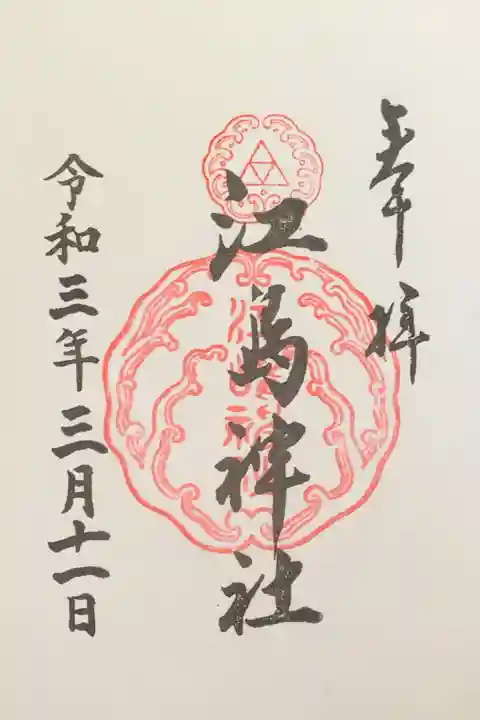 奉拝
江島神社
令和三年三月十一日